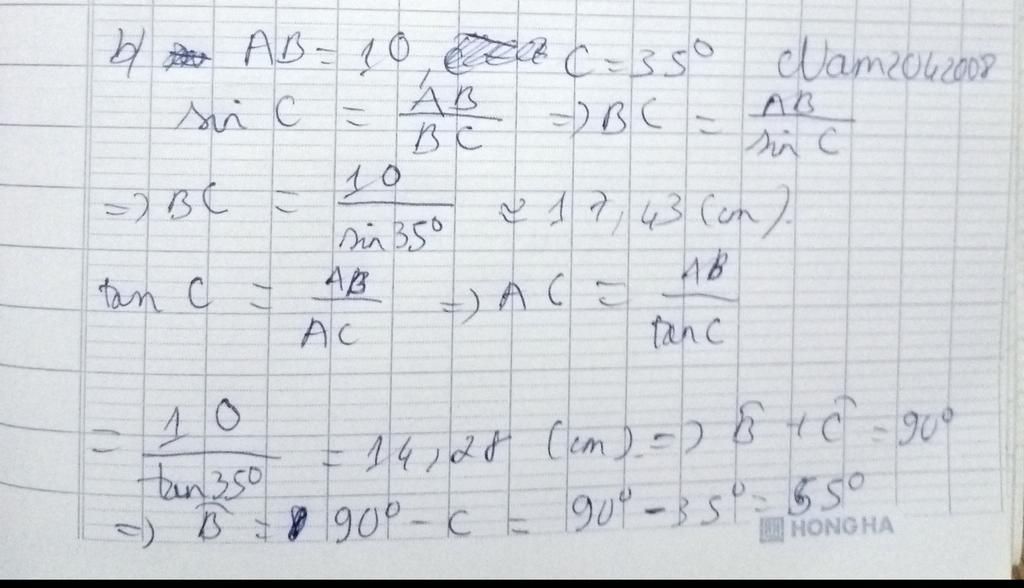 b/ AB = 10, C = 35° Nam2042008
sin C = AB/BC => BC = AB/sin C
=> BC = 10/sin35° ≈ 17,43 (cm).
tan C = AB/AC => AC = AB/tanC
= 10/tan35° = 14,28 (cm) => B̂ + Ĉ = 90°
=> B̂ = 90° - C = 90° - 35° = 55°
HONG HA